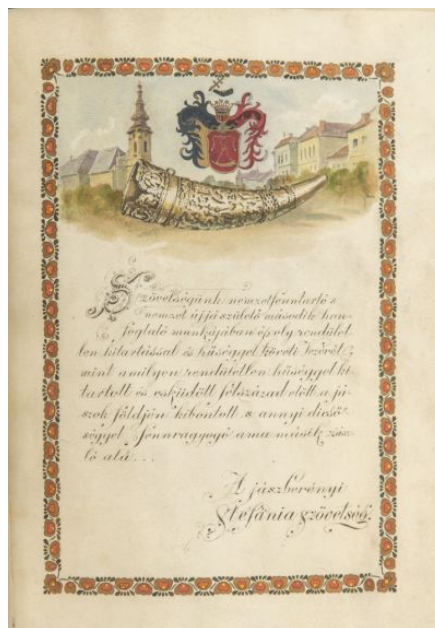 Szövetségünk nemzetfenntartó s
nemzet újjászülető második hon-
foglaló munkájában époly rendület-
len kitartással és hűséggel követi Vezérét,
mint a milyen rendületlen hűséggel ki-
tartott és esküdött félszázad előtt a já-
szok földjén kibontott s annyi dicső-
séggel fennragyogó ama másik zász-
ló alá...
A jászberényi
Stefánia szövetség.